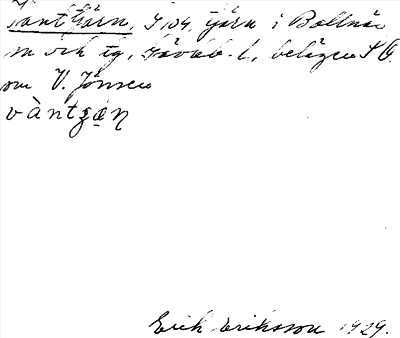 Vanttjärn, S 104, tjärn i Bollnäs
sn och tg, Gävleb. l., belägen S O.
om V. Jönsen
vàntʒæ̣ṇ
Erik Eriksson 1929.